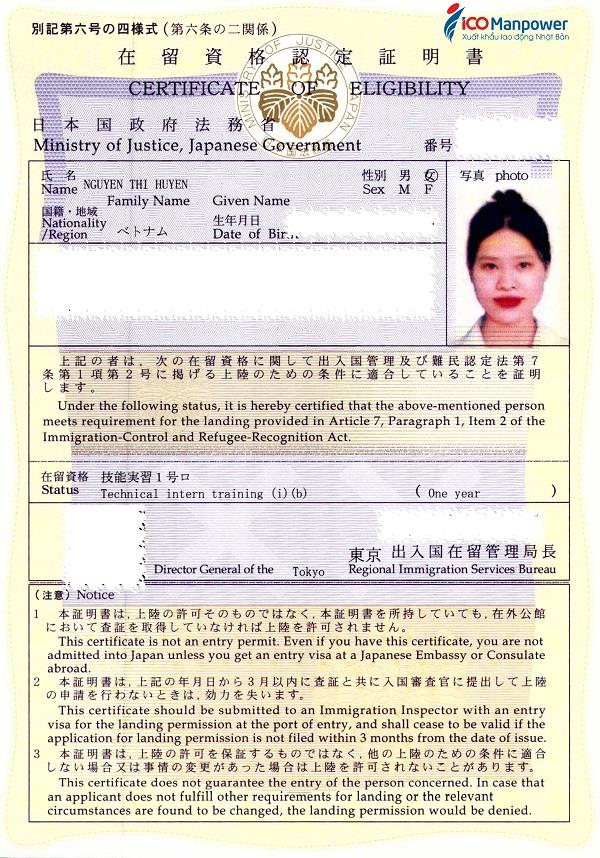 別記第六号の四様式（第六条の二関係）
iCO Manpower
Xuất khẩu lao động Nhật Bản
在留資格認定証明書
CERTIFICATE OF ELIGIBILITY
MINISTRY OF JUSTICE JAPAN
日本国政府法務省
Ministry of Justice, Japanese Government 番号
氏名 性別 男 女 写真 photo
Name NGUYEN THI HUYEN Sex M F
Family Name Given Name
国籍・地域 生年月日
Nationality ベトナム Date of
/Region
上記の者は，次の在留資格に関して出入国管理及び難民認定法第7
条第1項第2号に掲げる上陸のための条件に適合していることを証明
します。
Under the following status, it is hereby certified that the above-mentioned person
meets requirement for the landing provided in Article 7, Paragraph 1, Item 2 of the
Immigration-Control and Refugee-Recognition Act.
在留資格 技能実習1号ロ
Status Technical intern training (i)(b) ( One year )
東京 出入国在留管理局長
Director General of the Tokyo Regional Immigration Services Bureau
（注意）Notice
1 本証明書は，上陸の許可そのものではなく，本証明書を所持していても，在外公館
において査証を取得していなければ上陸を許可されません。
This certificate is not an entry permit. Even if you have this certificate, you are not
admitted into Japan unless you get an entry visa at a Japanese Embassy or Consulate
abroad.
2 本証明書は，上記の年月日から3月以内に査証と共に入国審査官に提出して上陸
の申請を行わないときは，効力を失います。
This certificate should be submitted to an Immigration Inspector with an entry
visa for the landing permission at the port of entry, and shall cease to be valid if the
application for landing permission is not filed within 3 months from the date of issue.
3 本証明書は，上陸の許可を保証するものではなく，他の上陸のための条件に適合
しない場合又は事情の変更があった場合は上陸を許可されないことがあります。
This certificate does not guarantee the entry of the person concerned. In case that
an applicant does not fulfill other requirements for landing or the relevant
circumstances are found to be changed, the landing permission would be denied.